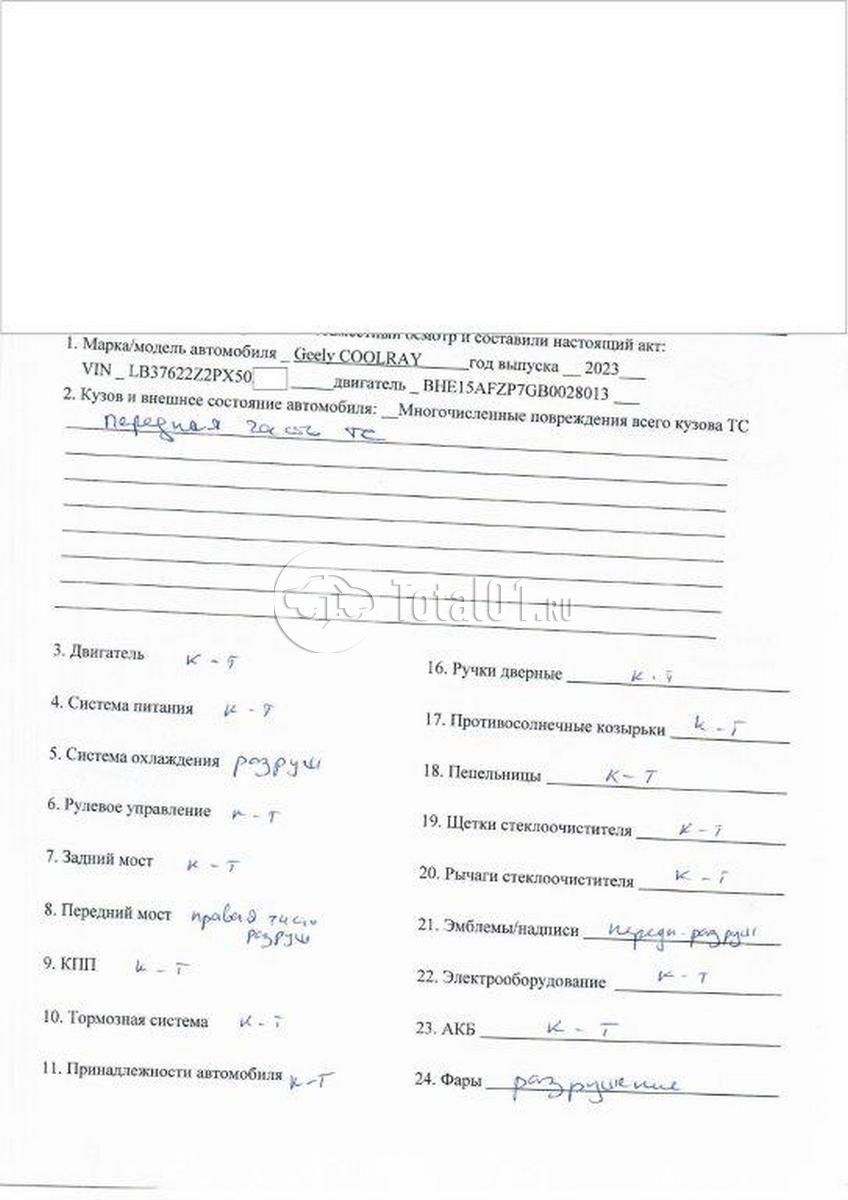 осмотр и составили настоящий акт:
1. Марка/модель автомобиля _ Geely COOLRAY_____год выпуска __ 2023___
VIN _ LB37622Z2PX50 _____двигатель _ BHE15AFZP7GB0028013 ___
2. Кузов и внешнее состояние автомобиля: __Многочисленные повреждения всего кузова ТС
передная часть ТС
Total01.RU
3. Двигатель к - т
4. Система питания к - т
5. Система охлаждения разруш
6. Рулевое управление к - т
7. Задний мост к - т
8. Передний мост правая часть
разруш
9. КПП к - т
10. Тормозная система к - т
11. Принадлежности автомобиля к-т
16. Ручки дверные к - т
17. Противосолнечные козырьки к - т
18. Пепельницы к - т
19. Щетки стеклоочистителя к - т
20. Рычаги стеклоочистителя к - т
21. Эмблемы/надписи передн-разруш
22. Электрооборудование к - т
23. АКБ к - т
24. Фары разрушение